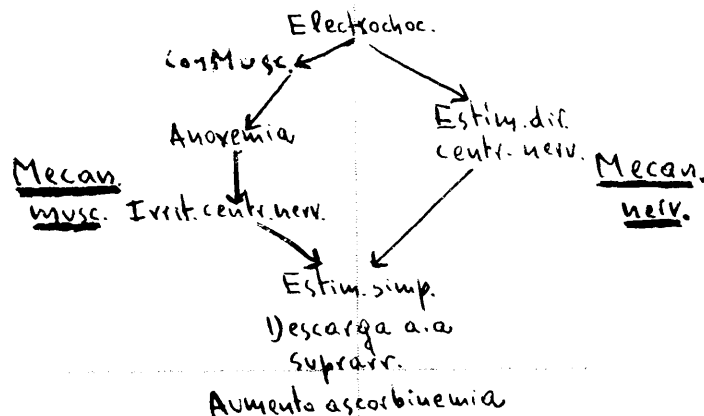 Electrochoc.
ConMusc.
Anoxemia
Estim. dir.
centr. nerv.
Mecan.
musc.
Irrit. centr. nerv.
Mecan.
nerv.
Estim. simp.
Descarga a.a
suprarr.
Aumento ascorbinemia